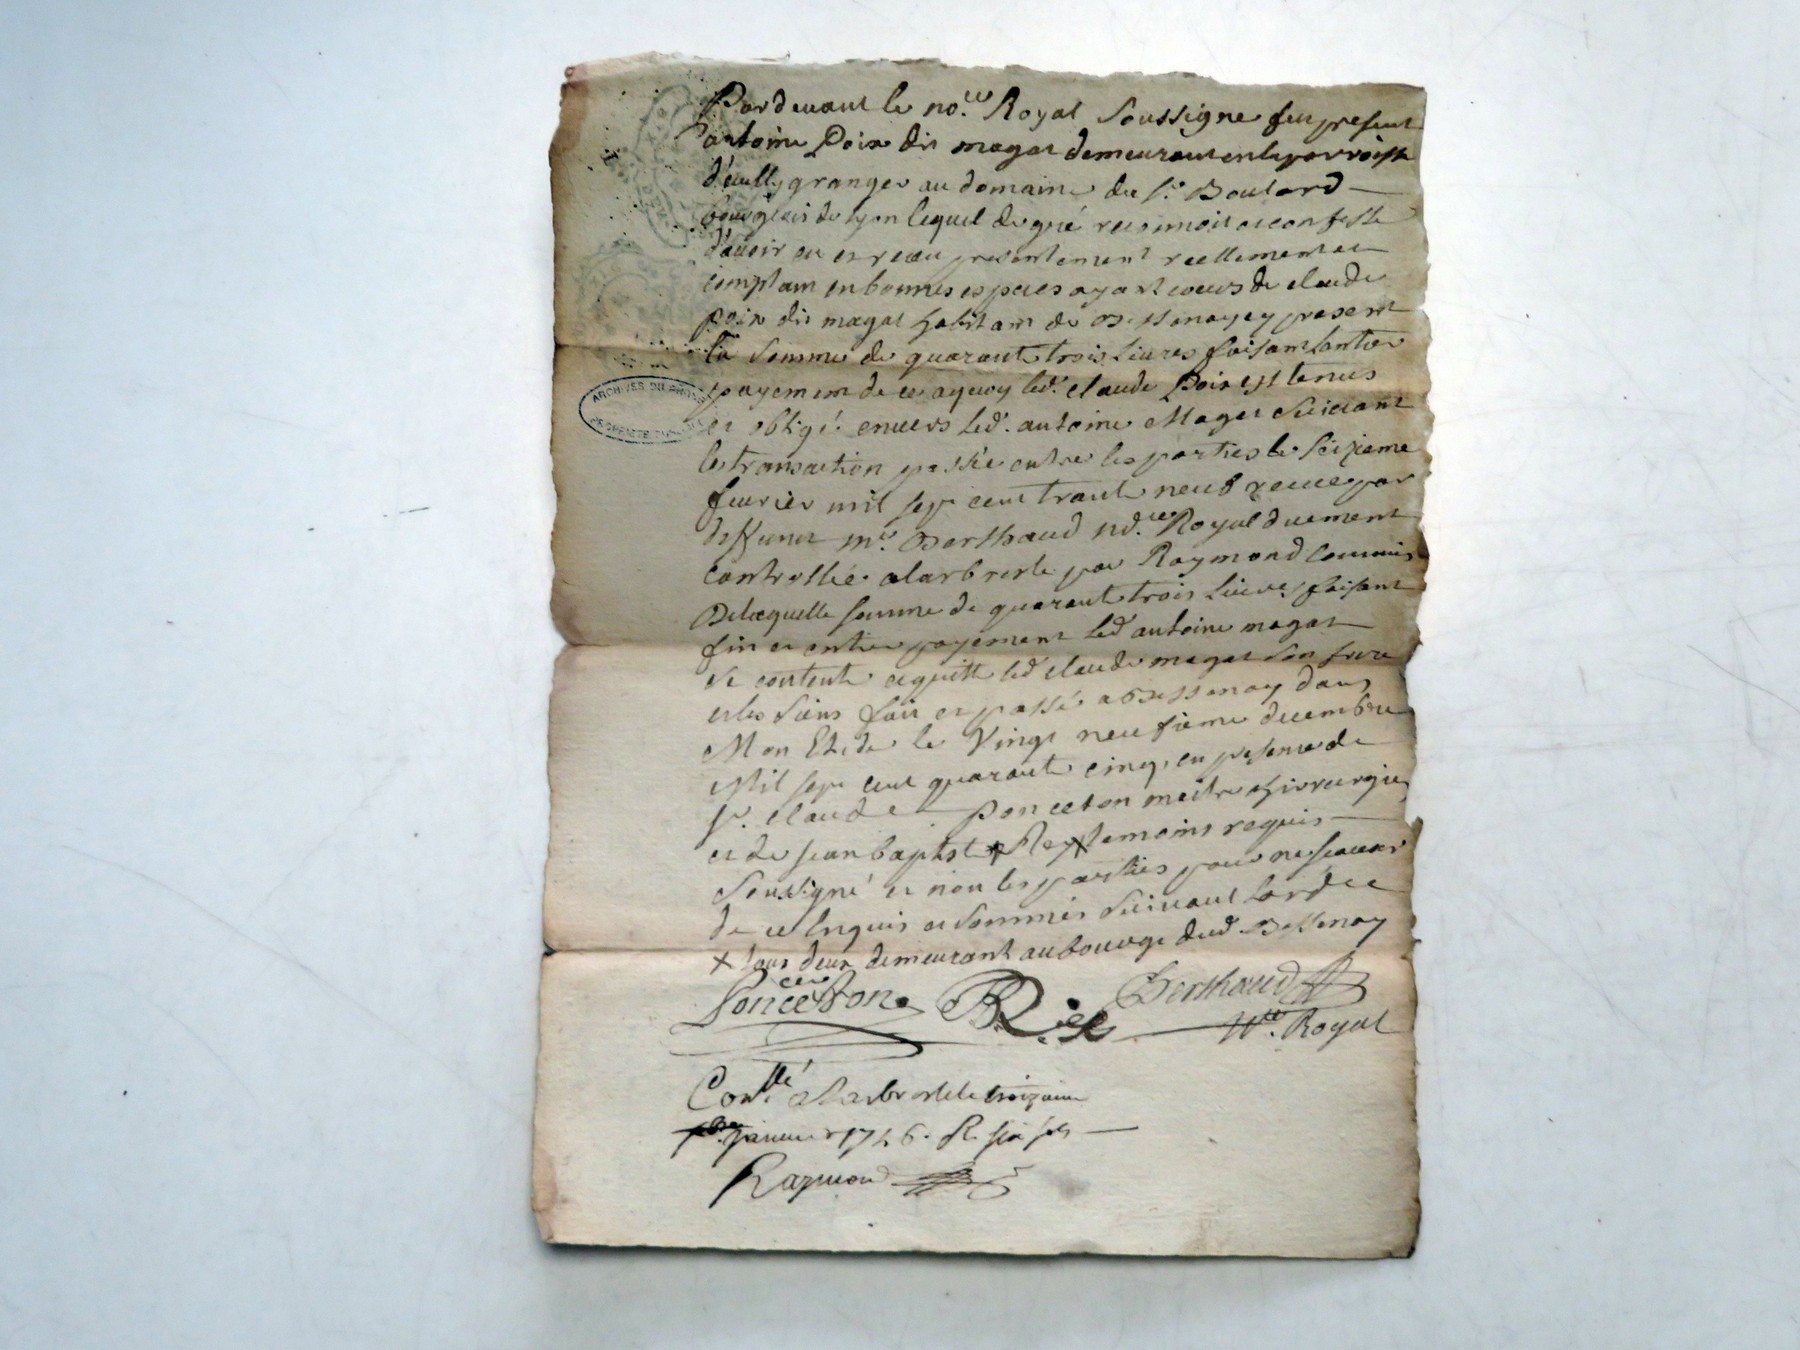 Pardevant le no.re Royal Soussigne fut present
antoine Poix dit magat demeurant en la parroisse
d'eully granger au domaine du Sr. Boulard
bourgeois de lyon lequel de gré reconnoit et confesse
d'avoir eu et receu presentement reellement et
comptant en bonnes especes ayant cours de claude
poix dit magat habitant de Bessenay cy present
la Somme de quarante trois livres faisant lantier
payement de ce aquoy led. claude Poix est tenus
et obligé envers led. antoine Magat Suivant
la transaction passée entre les parties le Seizieme
fevrier mil sept cent trante neuf receue par
deffunct me. Berthaud no.re Royal duement
controllée alarbresle par Raymond Commis
De laquelle somme de quarante trois livres faisant
fin et entier payement led antoine magat
se contente et quitte led claude magat son frere
et les Siens fait et passé a Bessenay dans
Mon Etude le Vingt neufieme decembre
Mil sept cent quarante cinq, en presence de
Sr. claude Ponceton maitre chirurgien
et de jean baptiste Rey temoins requis
Soussigné et non les parties pour ne scavoir
de ce Enquis et Sommés Suivant Lord.ce
X tous deux demeurant au bourg dud. Bessenay
Ponceton Berthaud
N.re Royal
Con.llé a Larbresle le troizieme
janvier 1746. R. six sols
Raymond
ARCHIVES DU RHONE